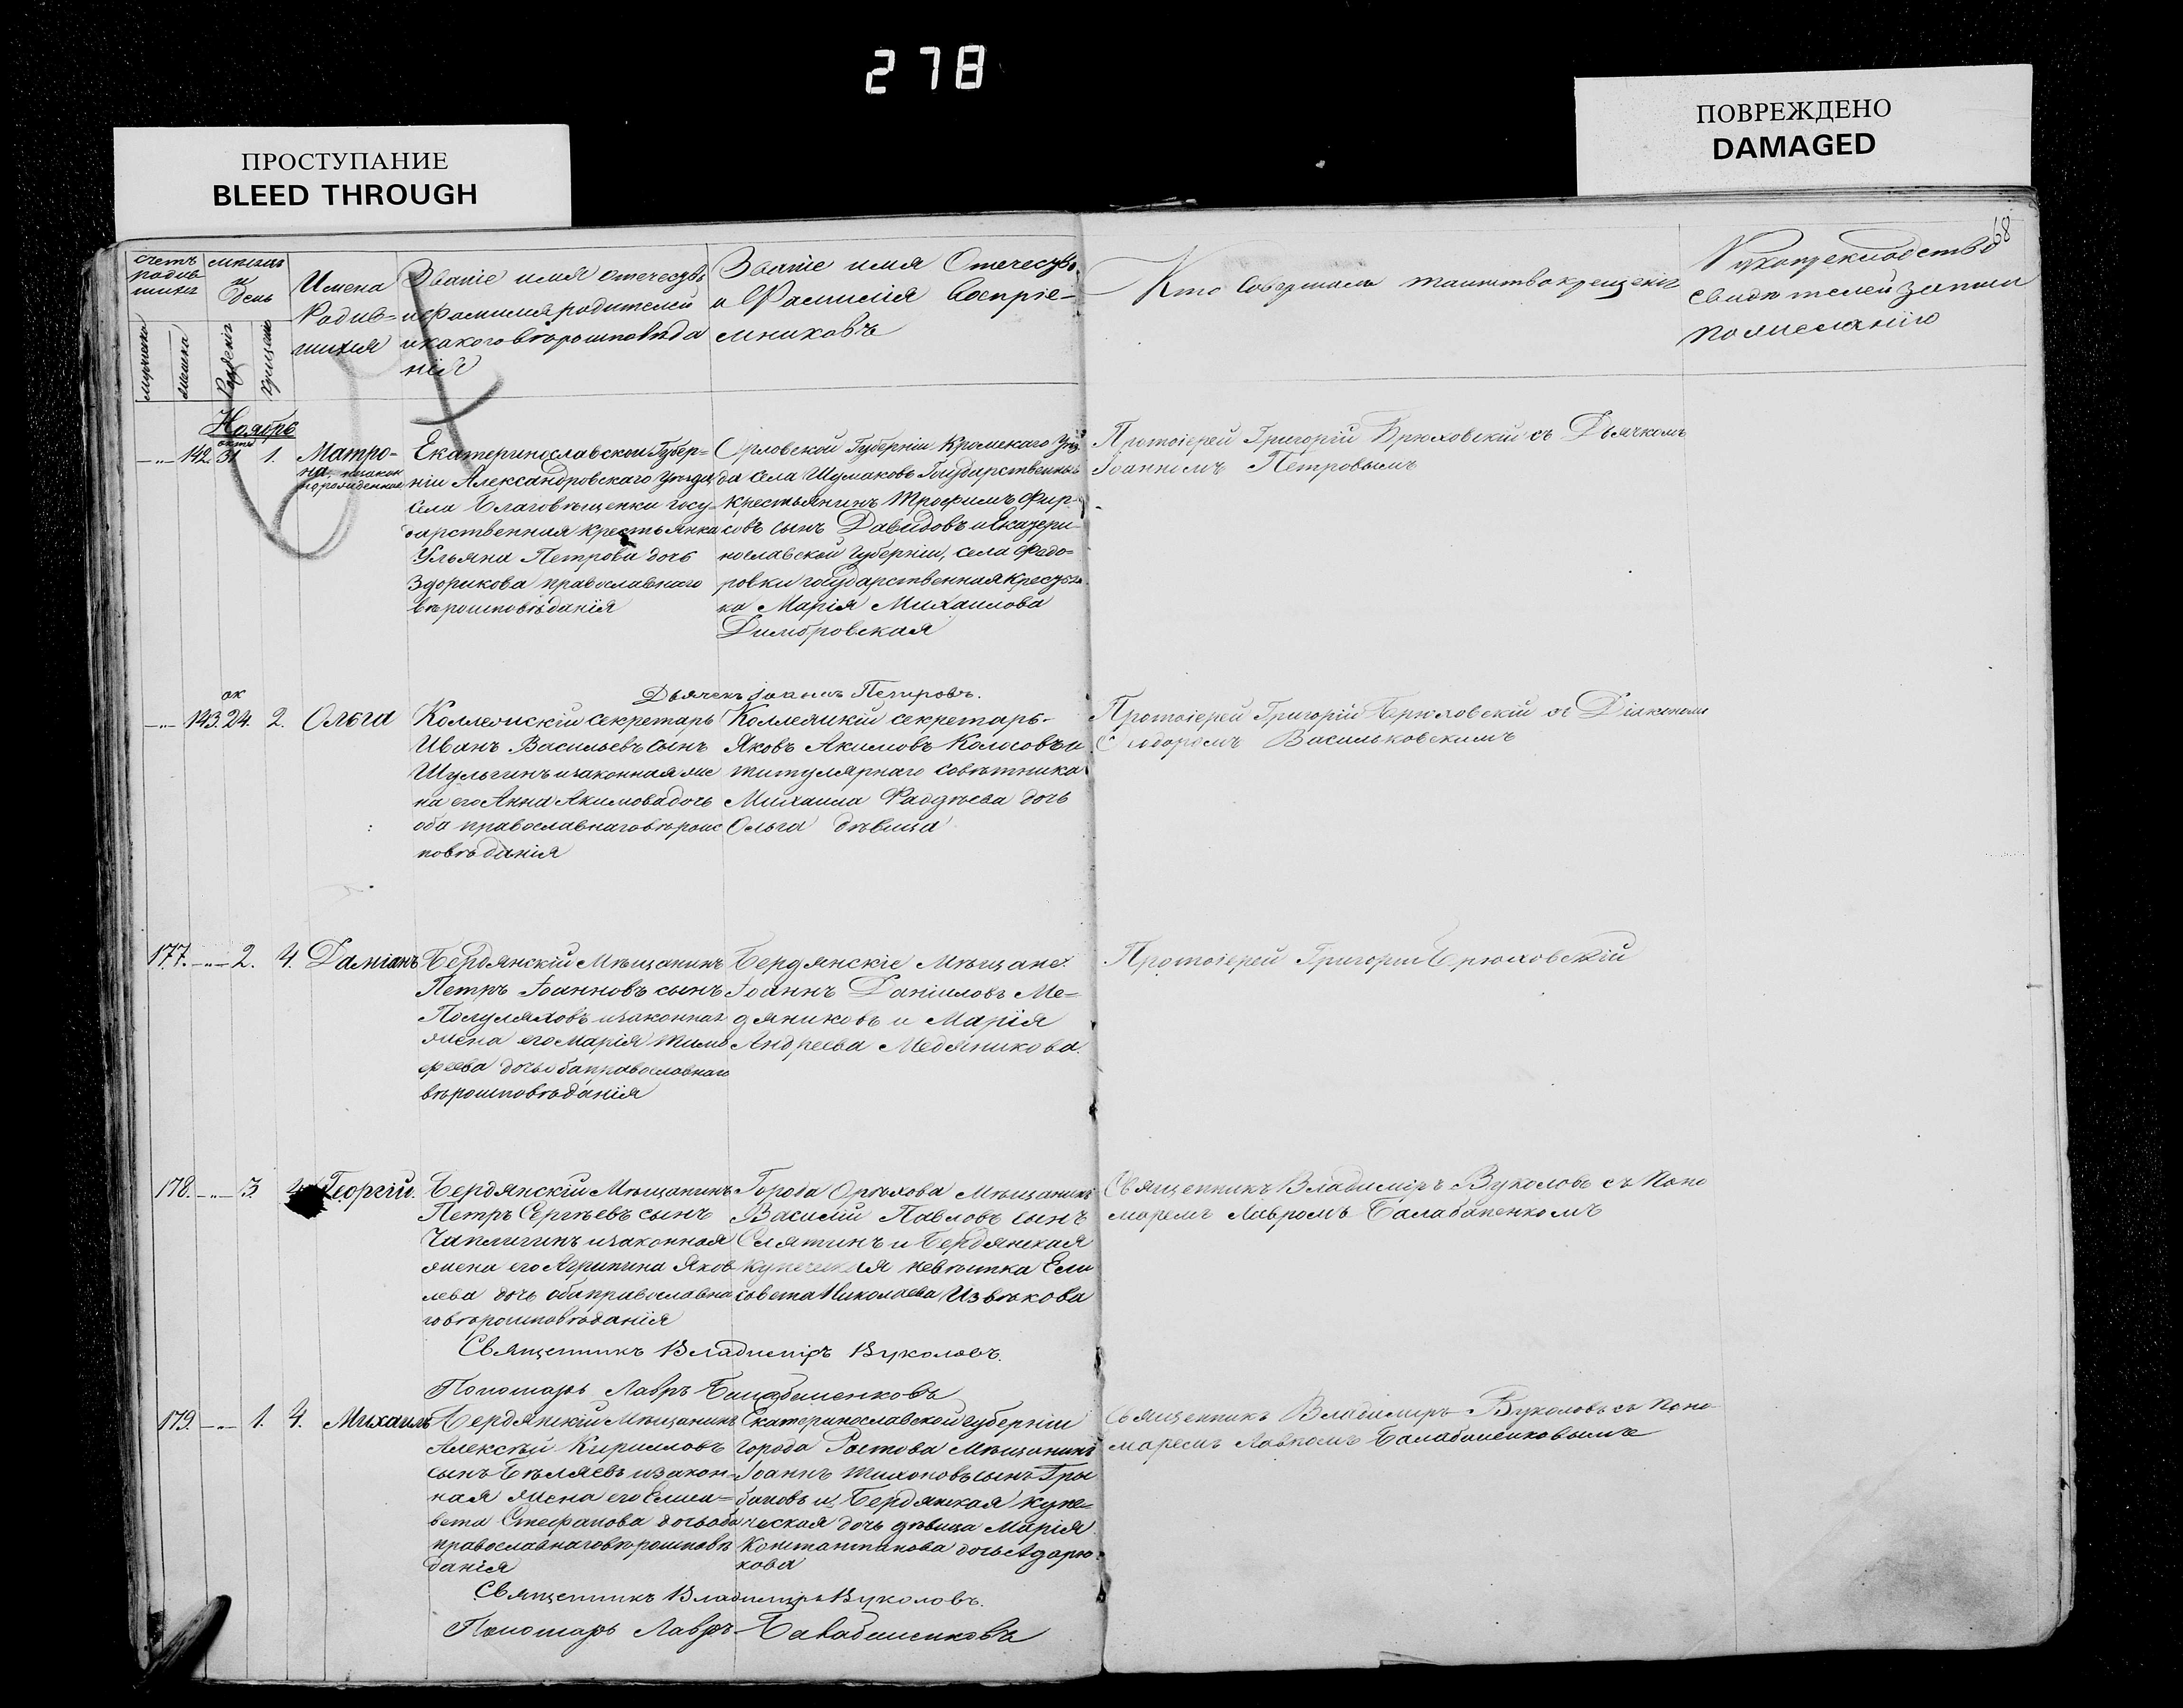 278
ПРОСТУПАНИЕ
BLEED THROUGH
ПОВРЕЖДЕНО
DAMAGED
68
счетъ родив-шихся
мѣсяцъ и День
мужеска
женска
Рожденія
крещенія
Имена
Родив=
шихся
Званіе имя отечество
и фамилия родителей
и какого вѣроисповѣда
нія
Званіе имя Отечество
и Фамилія воспріе-
мниковъ
Кто совершалъ таинство крещенія
Рукоприкладство
свидѣтелей записи
по желанію
Ноябрь
142. окт 31 1. Матро-
на незакон
норожденная
Екатеринославской Губер=
ніи Александровскаго Уѣзда
села Благовѣщенки госу-
дарственная крестьянка
Ульяна Петрова дочь
Здорикова православнаго
вѣроисповѣданія
Орловской Губерніи Кромскаго Уѣз
да села Шумакова Государственный
крестьянинъ Трофимъ Фир-
совъ сынъ Давидовъ и Екатери-
нославской Губерніи, села Федо=
ровки государственная крестьян
ка Марія Михаилова
Димбровская
Протоіерей Григорій Брюховскій съ Дьячкомъ
Іоанномъ Петровымъ
Дьячекъ Іоаннъ Петровъ.
143. ок 24. 2. Ольга
Коллежскій секретарь
Иванъ Васильевъ сынъ
Шульгинъ и законная же
на его Анна Акимова дочь
оба православнаго вѣроис
повѣданія
Коллежскій секретарь-
Яковъ Акимовъ Колосовъ и
титулярнаго совѣтника
Михаила Фаддѣева дочь
Ольга дѣвица
Протоіерей Григорій Брюховскій съ Діякономъ
Сидоромъ Васильковскимъ
177. 2. 4. Даміанъ
Бердянскій Мѣщанинъ
Петръ Іоанновъ сынъ
Полуляховъ и законная
жена его Марія Тимо
феева дочь оба православнаго
вѣроисповѣданія
Бердянскіе Мѣщане:
Іоаннъ Даніиловъ Ме=
дяниковъ и Марія
Андреева Медяникова.
Протоіерей Григорій Брюховскій
178. 3 4 Георгій.
Бердянскій Мѣщанинъ
Петръ Сергѣевъ сынъ
Чаплигинъ и законная
жена его Агрипина Яков
лева дочь оба православна
го вѣроисповѣданія
Города Орѣхова Мѣщанинъ
Василій Павловъ сынъ
Слятинъ и Бердянская
купеческая невѣстка Ели
савета Николаева Извѣкова
Священникъ Владиміръ Вуколовъ съ Поно
маремъ Лавромъ Балабаненкомъ
Священникъ Владиміръ Вуколовъ.
Пономарь Лавръ Балабаненковъ
179. 1. 4. Михаилъ
Бердянскій Мѣщанинъ
Алексѣй Кириловъ
сынъ Бѣляевъ и закон=
ная жена его Елиса=
вета Стефанова дочь оба
православнаго вѣроисповѣ
данія
Екатеринославской губерніи
города Ростова Мѣщанинъ
Іоаннъ Тихоновъ сынъ Гры
бановъ и Бердянская купе=
ческая дочь дѣвица Марія
Константинова дочь Адарю-
кова
Священникъ Владиміръ Вуколовъ съ Поно
маремъ Лавромъ Балабаненковымъ
Священникъ Владиміръ Вуколовъ.
Пономарь Лавръ Балабаненковъ